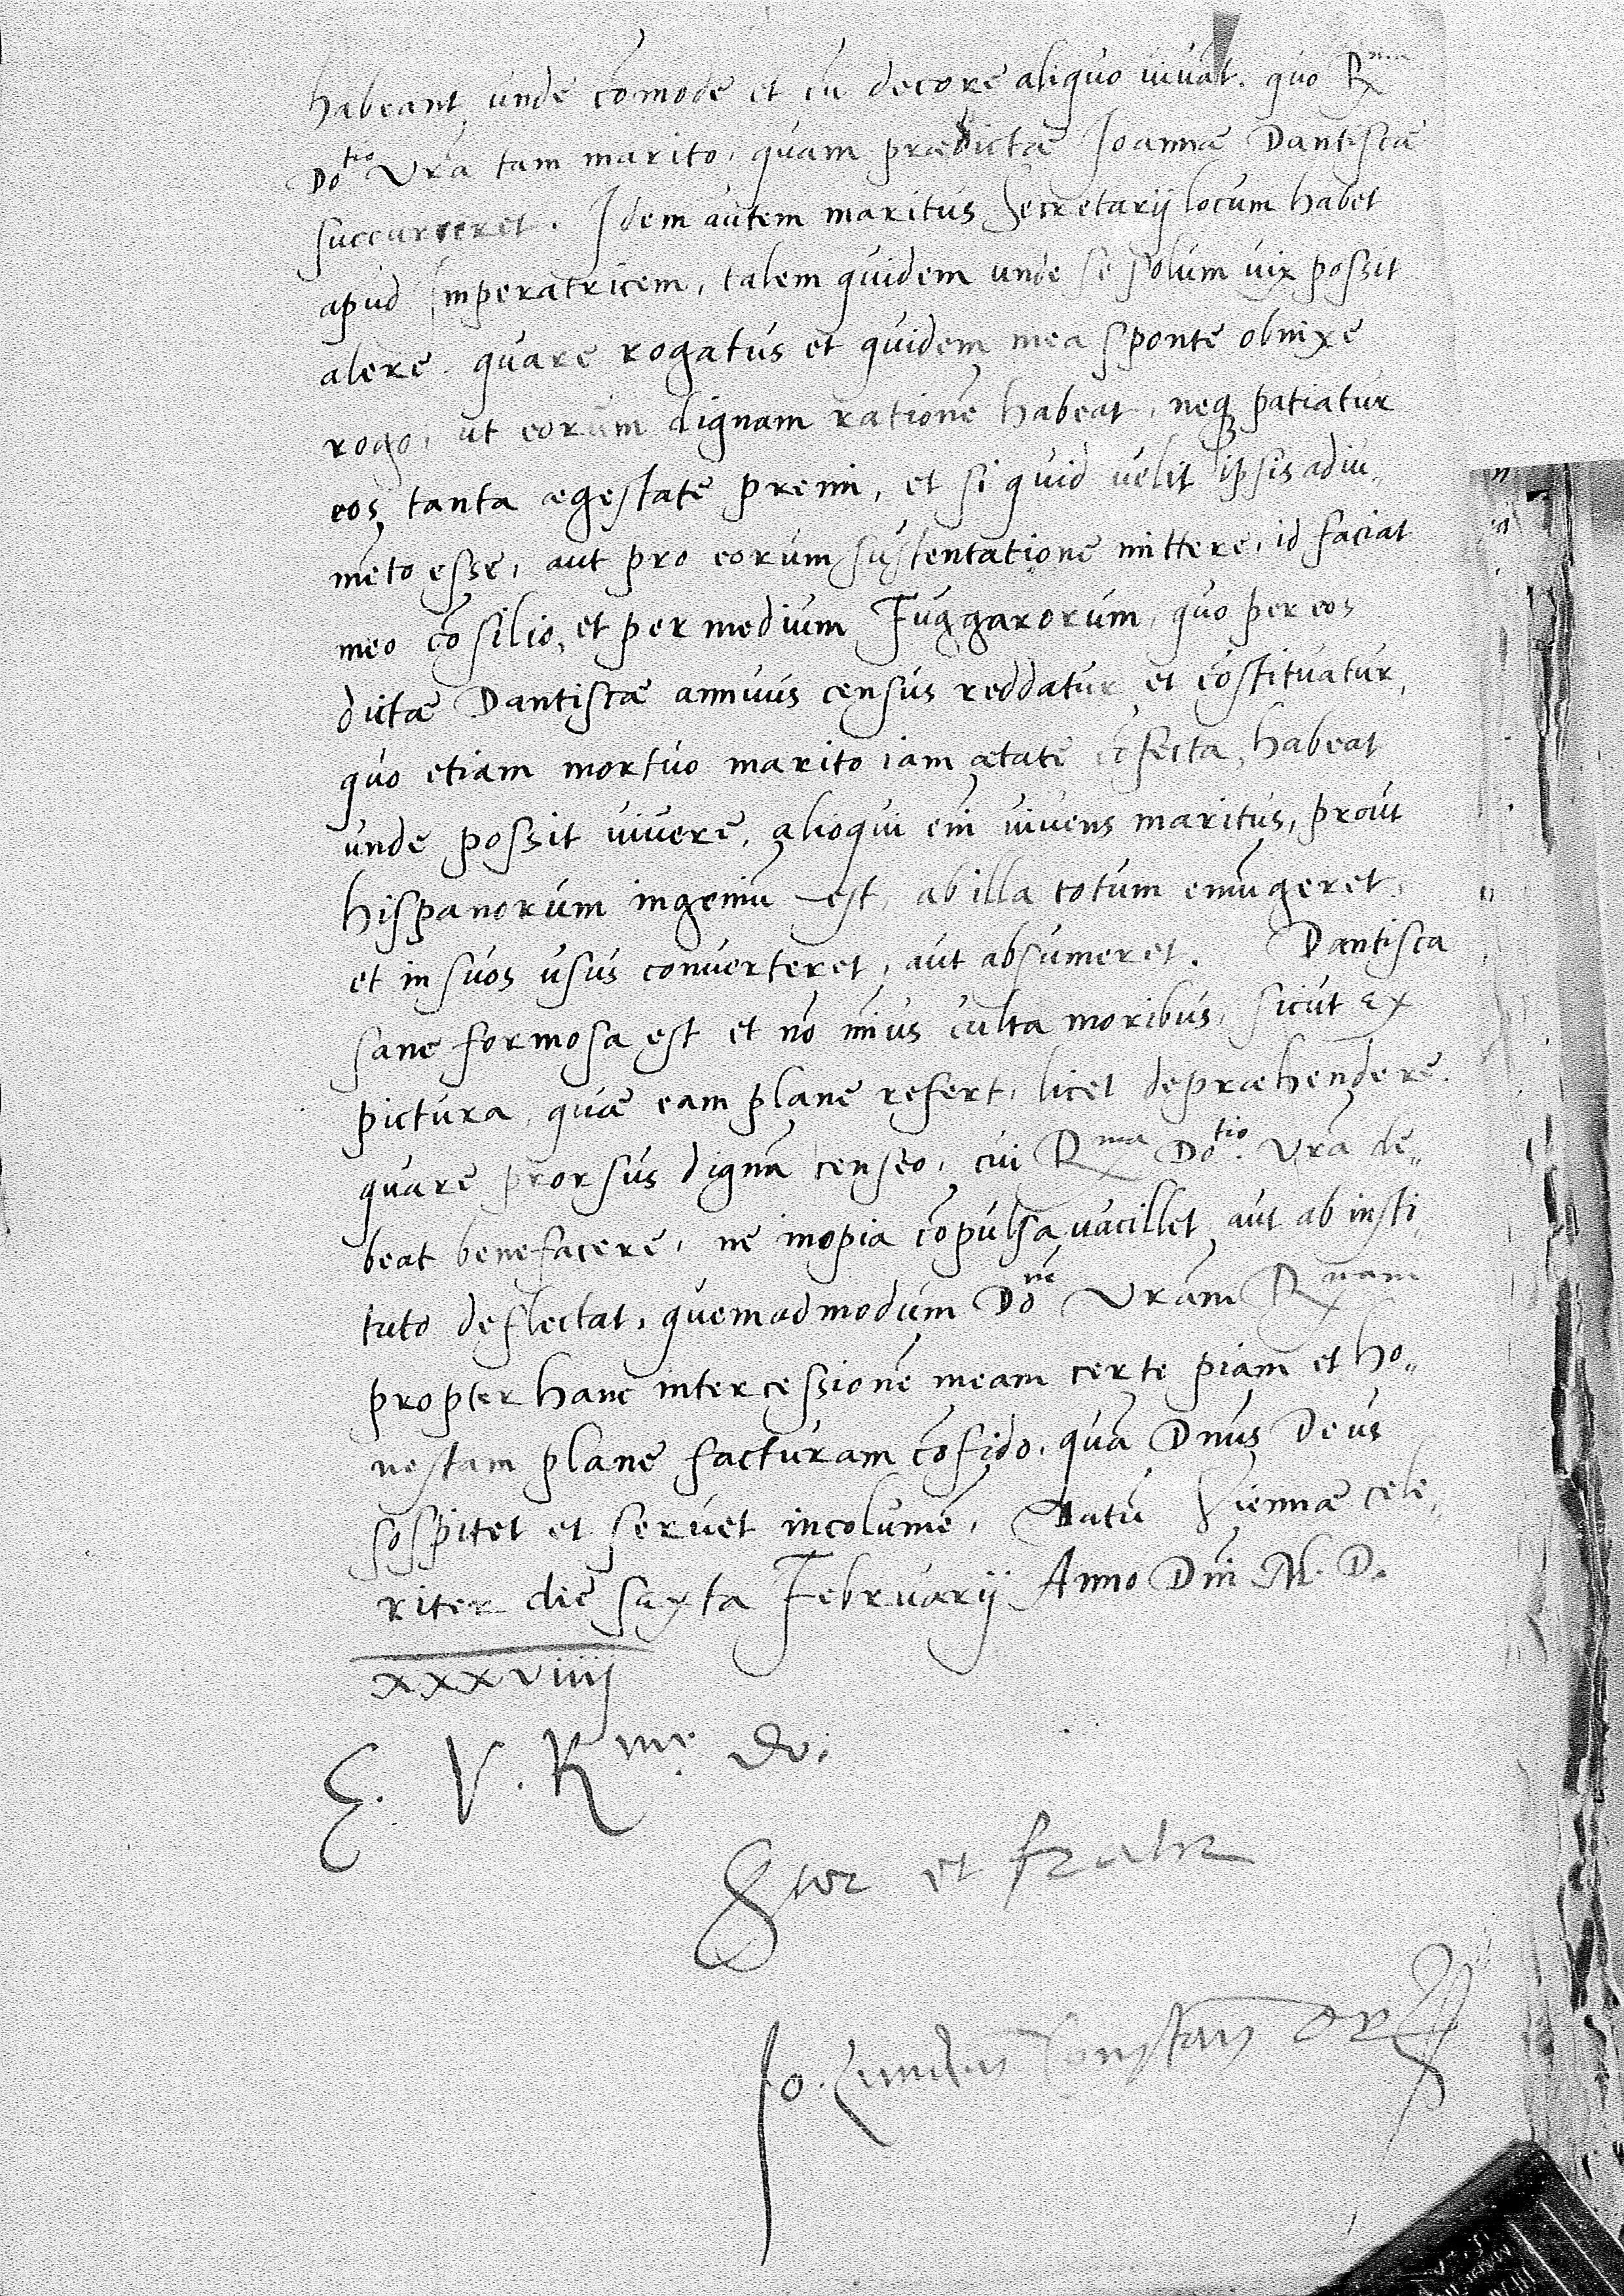 habeant, unde cōmode et cū decore aliquo vivāt. quo R^ma
Do^tio Vrā tam marito, quam prædictæ Joannæ Dantiscæ
succurreret. Idem autem maritus Secretarij locum habet
apud Imperatricem, talem quidem unde se solum vix possit
alere. quare rogatus et quidem mea sponte obnixe
rogo, ut eorum dignam rationē habeat, neq3 patiatur
eos tanta ægestate premi, et si quid velit ipsis adiu„
mēto esse, aut pro eorum sustentatione mittere, id faciat
meo cōsilio, et per medium Fuggarorum, quo per eos
dictæ Dantiscæ annuus census reddatur et cōstituatur,
quo etiam mortuo marito iam ætate cōfecta, habeat
unde possit vivere, alioqui eīm vivens maritus, prout
Hispanorum ingeniū est, ab illa totum emūgeret,
et in suos usus converteret, aut absumeret. Dantisca
sane formosa est et nō mīus culta moribus, sicut ex
pictura, quæ eam plane refert, licet depræhendere.
quare prorsus dignā censeo, cui R^ma Do^tio. Vrā de„
beat benefacere, ne inopia cōpulsa vacillet, aut ab insti„
tuto deflectat, quemadmodum Do^nē Vrām R^mam
propter hanc intercessionē meam certe piam et ho„
nestam plane facturam cōfido, quā Dn̄us Deus
sospitet et servet incolumē, Datū Viennæ cele„
riter die sexta Februarij Anno Dn̄i M. D.
xxxviiij
E. V. R^me. Do.
et frater
Jo.